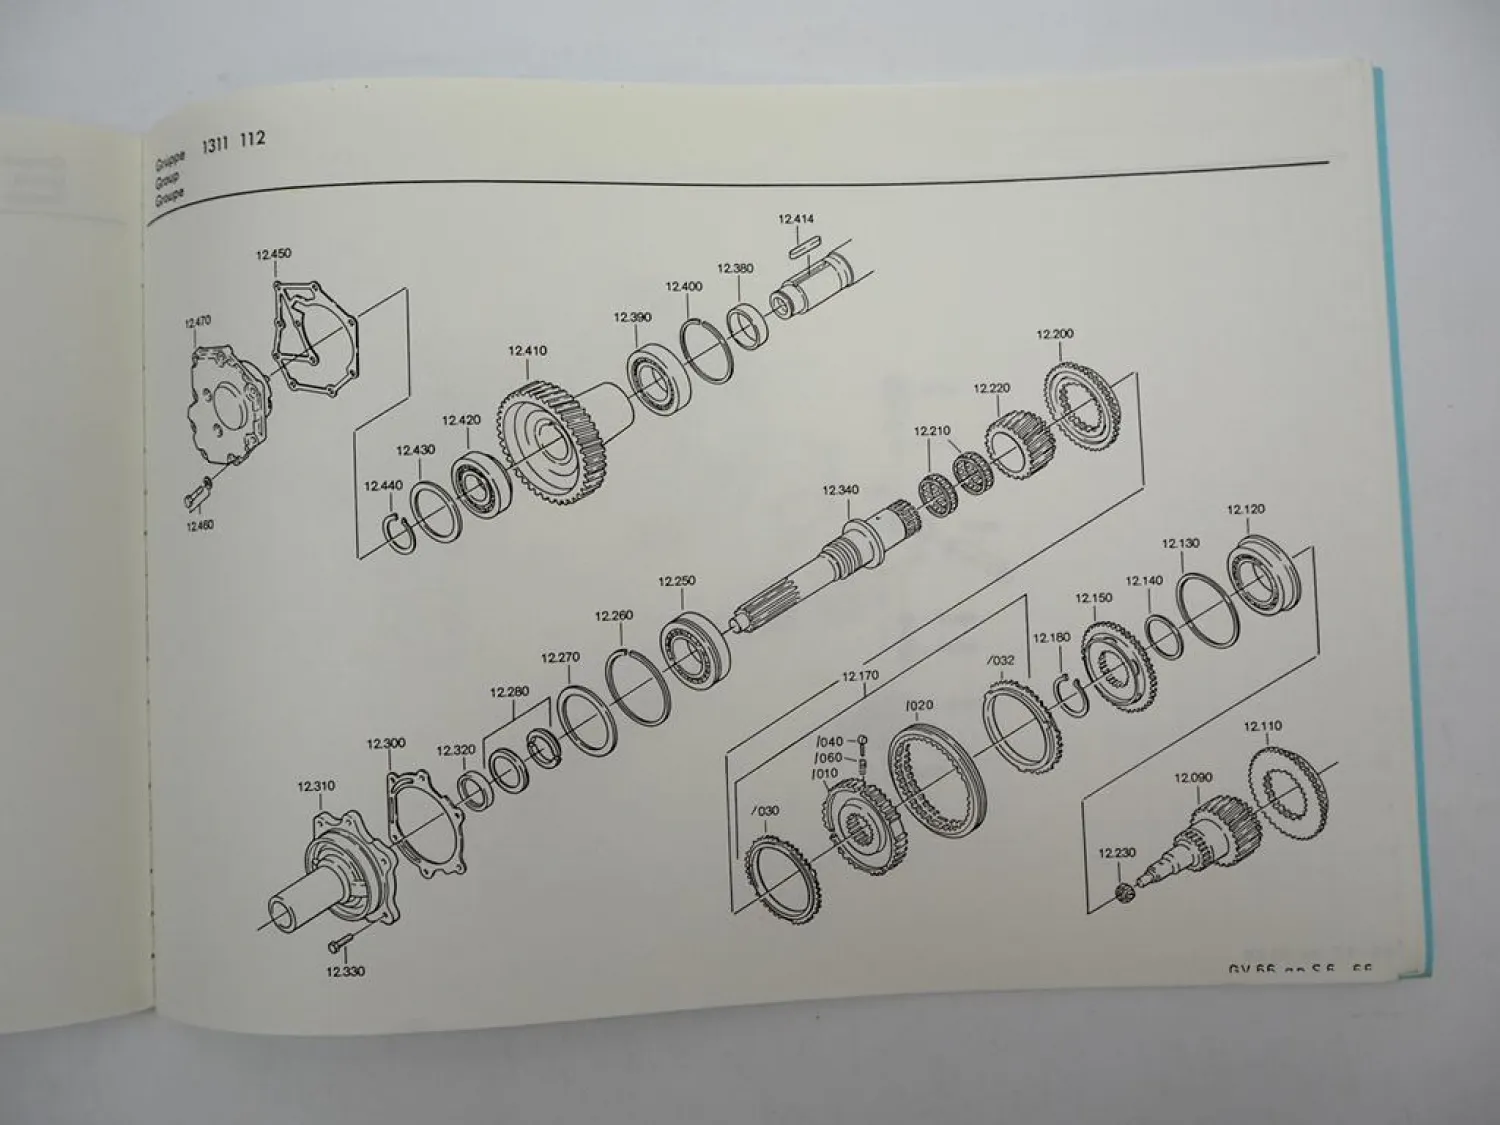 Gruppe 1311 112
Group
Groupe
12.414
12.450
12.380
12.400
12.470
12.390
12.200
12.410
12.220
12.420
12.210
12.430
12.440
12.340
12.460
12.120
12.130
12.250
12.140
12.260
12.150
12.180
12.270
/032
12.170
12.280
/020
12.110
12.300
12.320
/040
/060
/010
12.090
12.310
/030
12.230
12.330